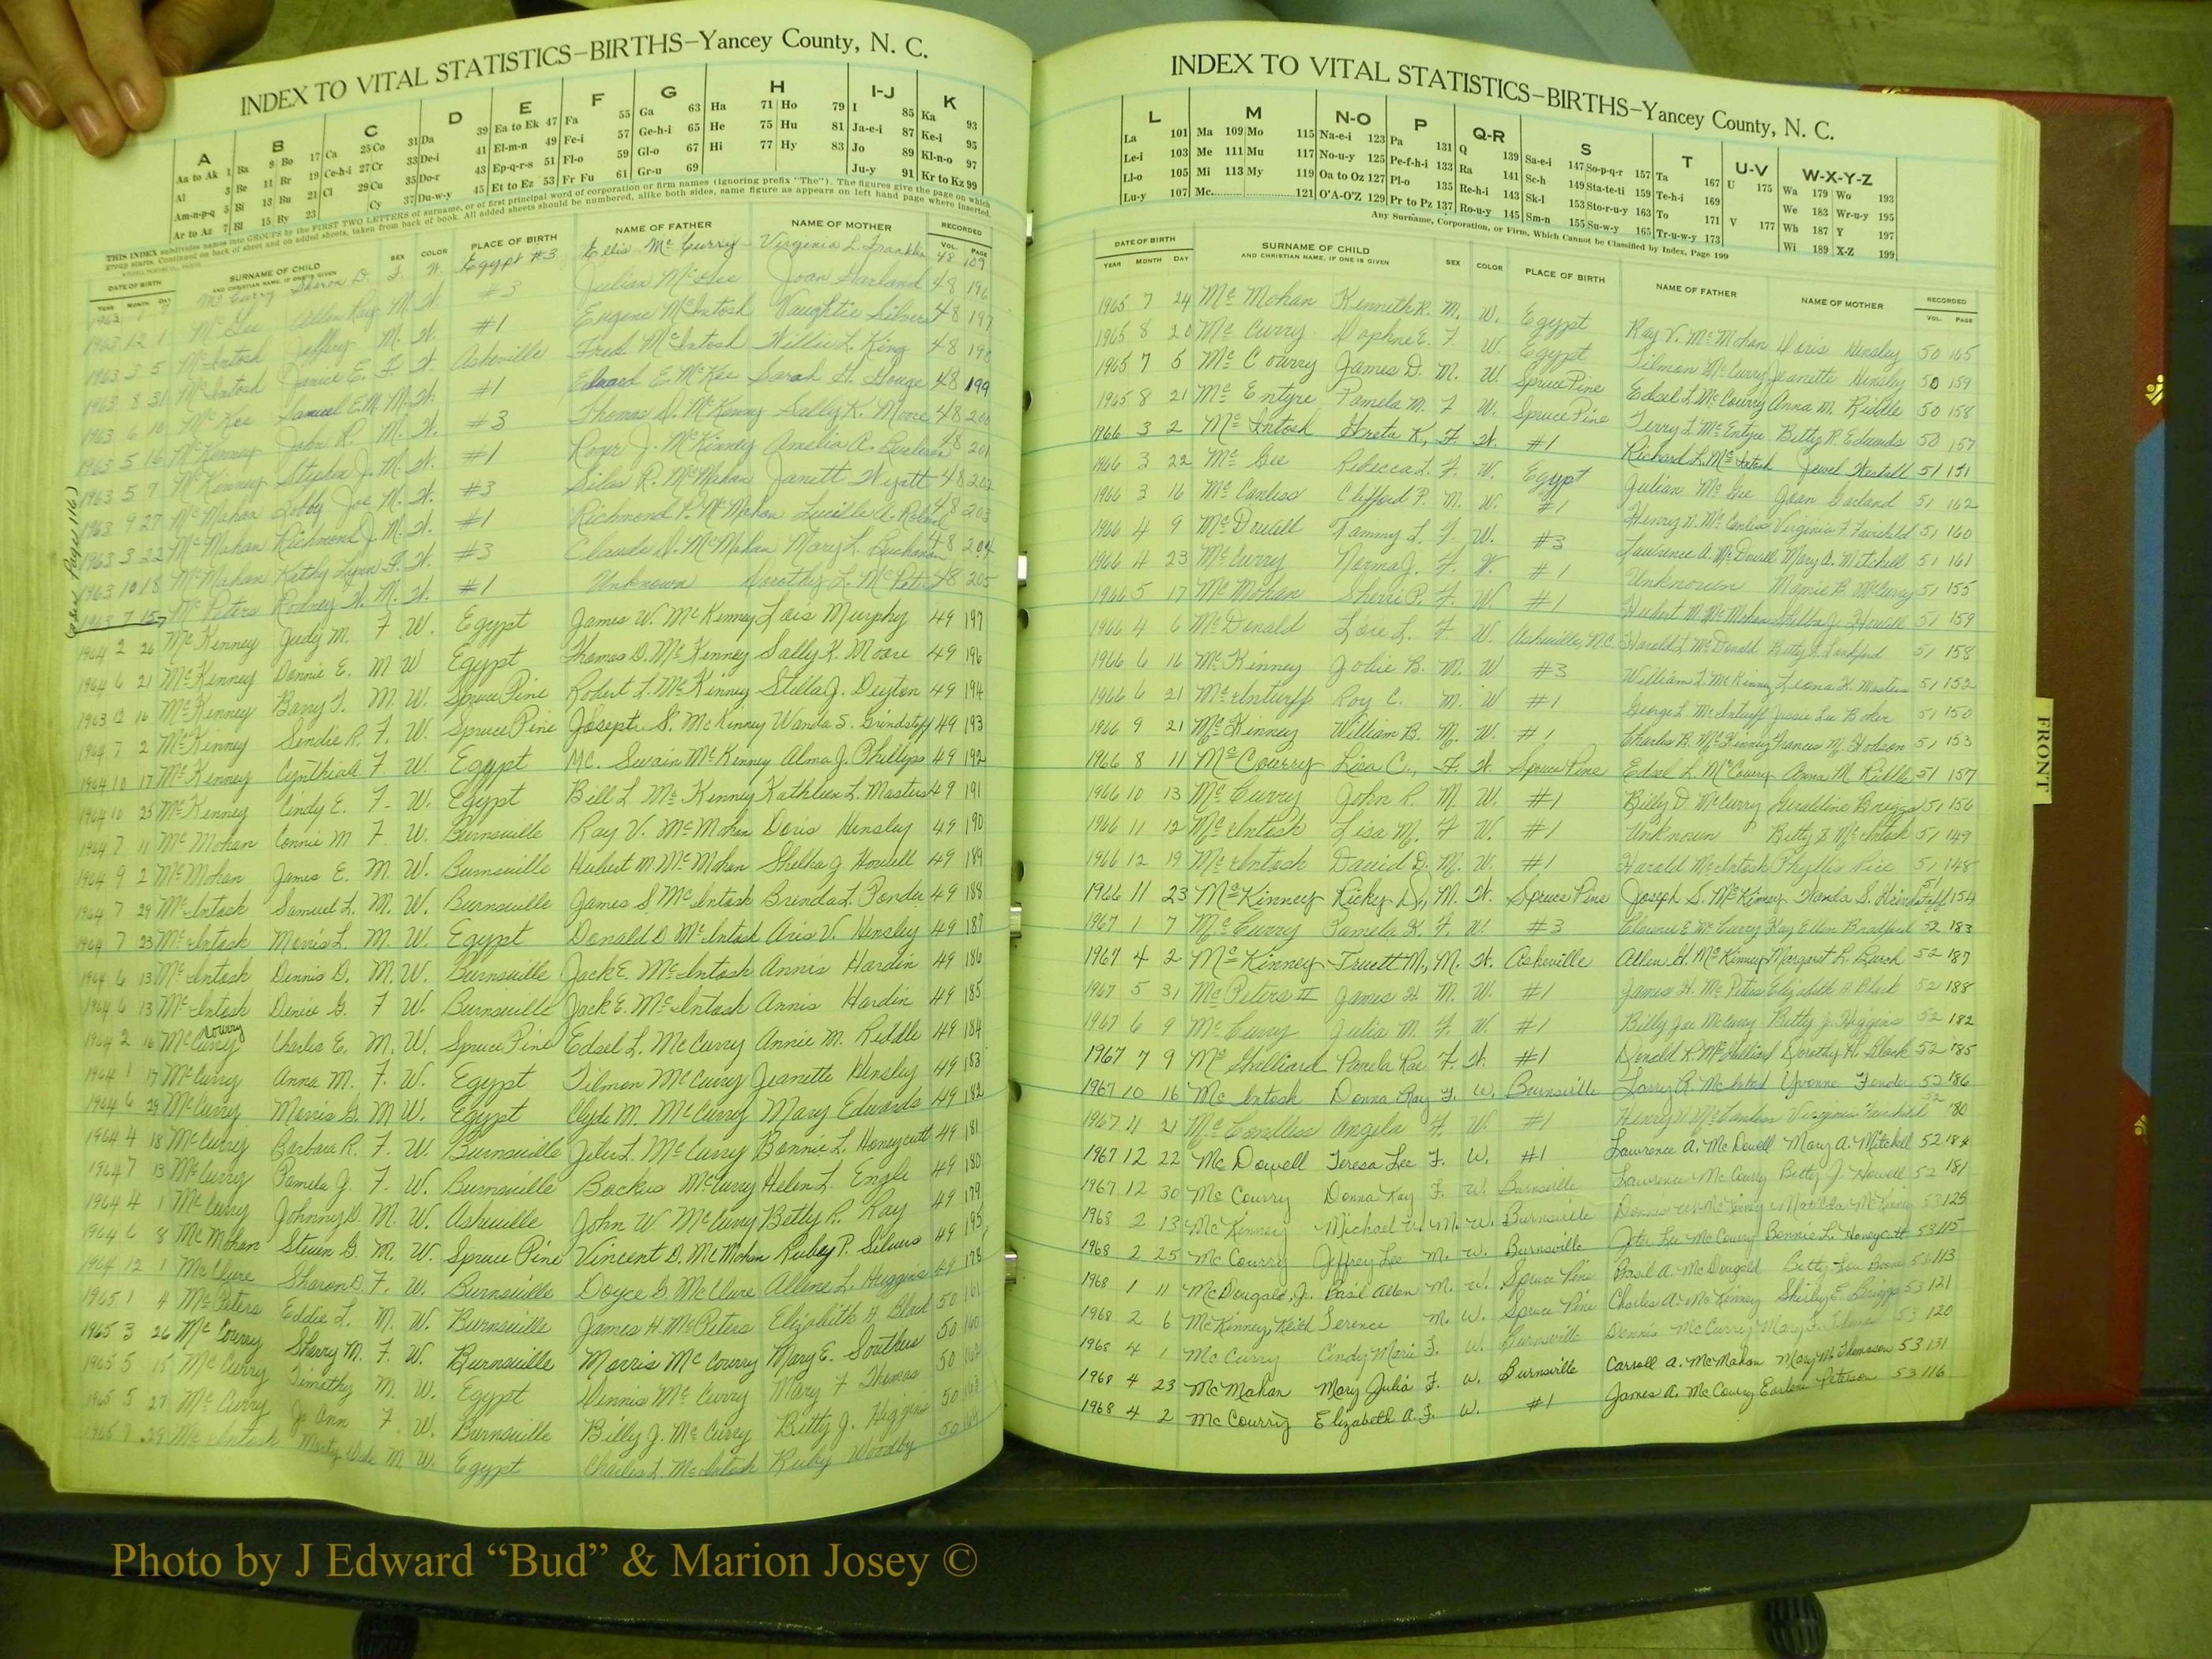 INDEX TO VITAL STATISTICS—BIRTHS—Yancey County, N. C.
A B C D E F G H I-J K
Aa to Ak 1 Ba 9 Bo 17 Ca 25 Co 31 Da 39 Ea to Ek 47 Fa 55 Ga 63 Ha 71 Ho 79 I 85 Ka 93
Al 3 Be 11 Br 19 Ce-h-i 27 Cr 33 De-i 41 El-m-n 49 Fe-i 57 Ge-h-i 65 He 75 Hu 81 Ja-e-i 87 Ke-i 95
Am-n-p-q 5 Bi 13 Bu 21 Cl 29 Cu 35 Do-r 43 Ep-q-r-s 51 Fl-o 59 Gl-o 67 Hi 77 Hy 83 Jo 89 Kl-n-o 97
Ar to Az 7 Bl 15 By 23 Cy 37 Du-w-y 45 Et to Ez 53 Fr Fu 61 Gr-u 69 Ju-y 91 Kr to Kz 99
THIS INDEX subdivides names into GROUPS by the FIRST TWO LETTERS of surname, or of first principal word of corporation or firm names (ignoring prefix "The"). The figures give the page on which
group starts. Continued on back of sheet and on added sheets, taken from back of book. All added sheets should be numbered, alike both sides, same figure as appears on left hand page where inserted.
DATE OF BIRTH SURNAME OF CHILD SEX COLOR PLACE OF BIRTH NAME OF FATHER NAME OF MOTHER RECORDED
YEAR MONTH DAY AND CHRISTIAN NAME, IF ONE IS GIVEN VOL. PAGE
1963 McCurry Sharon D. F. W. Egypt #3 Ellis McCurry Virginia L. Franklin 48 109
1963 12 1 McGee Allen Ray M. W. #3 Julian McGee Joan Garland 48 196
1963 3 5 McIntosh Jeffrey M. W. #1 Eugene McIntosh Vaughtie Silvers 48 197
1963 8 31 McIntosh Janice E. F. W. Asheville Fred McIntosh Willie L. King 48 198
1963 6 10 McKee Samuel E.M. M. W. #1 Edward E. McKee Sarah H. Gouge 48 199
1963 5 16 McKenney John R. M. W. #3 Thomas D. McKenney Sally K. Moore 48 200
1963 5 7 McKinney Stephen J. M. W. #1 Roger J. McKinney Amelia A. 48 201
1963 9 27 McMahan Bobby Joe M. W. #3 Silas R. McMahan Janett Wyatt 48 202
1963 3 22 McMahan Richmond J. M. W. #1 Richmond P. McMahan Lucille A. Roland 48 203
1963 10 18 McMahan Kathy Lynn F. W. #3 Claude D. McMahan Mary L. Buchanan 48 204
1963 7 15 McPeters Rodney W. M. W. #1 Unknown Dorothy L. McPeters 48 205
1964 2 26 McKenney Judy M. F. W. Egypt James W. McKenney Lois Murphy 49 197
1964 6 21 McKenney Donnie E. M W Egypt Thomas D. McKenney Sally K. Moore 49 196
1963 12 16 McKenney Barry T. M. W. Spruce Pine Robert L. McKinney Stella J. Deyton 49 194
1964 7 2 McKinney Sindie R. F. W. Spruce Pine Joseph S. McKinney Wanda S. Grindstaff 49 193
1964 10 17 McKenney Cynthia A F. W. Egypt Mc. Swain McKenney Alma J. Phillips 49 192
1964 10 25 McKenney Cindy E. F. W. Egypt Bill L McKenney Kathleen L. Masters 49 191
1964 7 11 McMohan Connie M F. W. Burnsville Ray V. McMohan Doris Hensley 49 190
1964 9 2 McMohan James E. M. W. Burnsville Hubert M. McMohan Shelba J Howell 49 189
1964 7 29 McIntosh Samuel L. M. W. Burnsville James S McIntosh Brenda L. Ponder 49 188
1964 7 23 McIntosh Morris L. M. W. Egypt Donald D McIntosh Aris V. Hensley 49 187
1964 6 13 McIntosh Dennis D. M. W. Burnsville Jack E. McIntosh Annis Hardin 49 186
1964 6 13 McIntosh Denice G. F W. Burnsville Jack E. McIntosh Annis Hardin 49 185
Courry
1964 2 16 McCurry Charles E. M. W. Spruce Pine Edsel L. McCurry Annie M. Riddle 49 184
1964 1 17 McCurry Anna M. F. W. Egypt Tilmon McCurry Jeanette Hensley 49 183
1964 6 29 McCurry Morris G. M W. Egypt Clyde M. McCurry Mary Edwards 49 182
1964 4 18 McCurry Barbara R. F. W. Burnsville Jeter L. McCurry Bonnie L. Honeycutt 49 181
1964 7 13 McCurry Pamela J. F. W. Burnsville Backus McCurry Helen L. Engle 49 180
1964 4 1 McCurry Johnny D. M. W. Asheville John W. McCurry Betty R. Ray 49 179
1964 6 8 McMohan Steven G. M. W. Spruce Pine Vincent D. McMohan Rubey P. Silvers 49 195
1964 12 1 McClure Sharon D. F. W. Burnsville Doyce G. McClure Allene L. Huggins 49 178
1965 1 4 McPeters Eddie L. M. W. Burnsville James H McPeters Elizabeth A Black 50 161
1965 3 26 McCourry Sherry M. F. W. Burnsville Morris McCourry Mary E. Southers 50 160
1965 5 15 McCurry Timothy M. W. Egypt Dennis McCurry Mary F Thomas 50 162
1965 5 27 McCurry Jo Ann F W. Burnsville Billy J. McCurry Betty J. Higgins 50 163
1965 29 McIntosh Marty Dale M. W. Egypt Charles L McIntosh Ruby Woodby 50
INDEX TO VITAL STATISTICS—BIRTHS—Yancey County, N. C.
L M N-O P Q-R S T U-V W-X-Y-Z
La 101 Ma 109 Mo 115 Na-e-i 123 Pa 131 Q 139 Sa-e-i 147 So-p-q-r 157 Ta 167 U 175 Wa 179 Wo 193
Le-i 103 Me 111 Mu 117 No-u-y 125 Pe-f-h-i 133 Ra 141 Sc-h 149 Sta-te-ti 159 Te-h-i 169 We 183 Wr-u-y 195
Ll-o 105 Mi 113 My 119 Oa to Oz 127 Pl-o 135 Re-h-i 143 Sk-l 153 Sto-r-u-y 163 To 171 V 177 Wh 187 Y 197
Lu-y 107 Mc 121 O'A-O'Z 129 Pr to Pz 137 Ro-u-y 145 Sm-n 155 Su-w-y 165 Tr-u-w-y 173 Wi 189 X-Z 199
Any Surname, Corporation, or Firm, Which Cannot be Classified by Index, Page 199
DATE OF BIRTH SURNAME OF CHILD SEX COLOR PLACE OF BIRTH NAME OF FATHER NAME OF MOTHER RECORDED
YEAR MONTH DAY AND CHRISTIAN NAME, IF ONE IS GIVEN VOL. PAGE
1965 7 24 McMohan Kenneth R. M. W. Egypt Ray V. McMohan Doris Hensley 50 165
1965 8 20 McCurry Daphne E. F W. Egypt Tilmon McCurry Jeanette Hensley 50 159
1965 7 5 McCourry James D. M. W. Spruce Pine Edsel L McCourry Anna M. Riddle 50 158
1965 8 21 McEntyre Pamela M. F W. Spruce Pine Terry L McEntyre Betty R. Edwards 50 157
1966 3 2 McIntosh Greta K. F. W. #1 Richard L. McIntosh Jewel 51 151
1966 3 22 McGee Rebecca L. F. W. Egypt Julian McGee Joan Garland 51 162
1966 3 16 McCanless Clifford P. M. W. #1 Henry D. McCanless Virginia F Fairchild 51 160
1966 4 9 McDowell Tammy L. F. W. #3 Lawrence A. McDowell Mary A. Mitchell 51 161
1966 4 23 McCurry Norma J. F. W. #1 Unknown Mamie B. McCurry 51 155
1966 5 17 McMohan Sherri P. F. W #1 Hubert M. McMohan Shelba J. Howell 51 159
1966 4 6 McDonald Lori L. F W. Asheville, N.C. Harold L McDonald Betty J. Lankford 51 158
1966 6 16 McKinney Jobie B. M. W #3 William L. McKinney Leona K. Masters 51 152
1966 6 21 McInturff Roy C. M. W #1 George L. McInturff Jessie Lee Baker 51 150
1966 9 21 McKinney William B. M. W. #1 Charles B. McKinney Frances M. Hodson 51 153
1966 8 11 McCourry Lisa C., F. W. Spruce Pine Edsel L. McCourry Anna M. Riddle 51 157
1966 10 13 McCurry John R. M. W. #1 Billy D. McCurry Geraldine Briggs 51 156
1966 11 12 McIntosh Lisa M. F W. #1 Unknown Betty S. McIntosh 51 149
1966 12 19 McIntosh David D. M. W. #1 Harold McIntosh Phyllis Rice 51 148
1966 11 23 McKinney Ricky D., M. W. Spruce Pine Joseph S. McKinney Wanda S. Grindstaff 51 154
1967 1 7 McCurry Pamela K. F. W. #3 Clarence E. McCurry Kay Ellen Bradford 52 183
1967 4 2 McKinney Truett M., M. W. Asheville Allen G. McKinney Margaret L. Burch 52 187
1967 5 31 McPeters II James H. M. W. #1 James H. McPeters Elizabeth A Black 52 188
1967 6 9 McCurry Julia M. F. W. #1 Billy Joe McCurry Betty J. Higgins 52 182
1967 7 9 McGhilliard Pamela Rae F. W. #1 Donald R. McGhilliard Dorothy H. Black 52 185
1967 10 16 McIntosh Donna Ray F. W. Burnsville Larry R. McIntosh Yvonne Fender 52 186
1967 11 21 McCandless Angela F. W #1 Henry D. McCanless Virginia Fairchild 52 180
1967 12 22 McDowell Teresa Lee F. W. #1 Lawrence A. McDowell Mary A. Mitchell 52 184
1967 12 30 McCourry Donna Kay F. W. Burnsville Lawrence McCourry Betty J. Howell 52 181
1968 2 13 McKinney Michael W. M. W. Burnsville Dennis W. McKinney Matilda McKinney 53 125
1968 2 25 McCourry Jeffrey Lee M. W. Burnsville Jeter Lee McCourry Bonnie L. Honeycutt 53 115
1968 1 11 McDougald, Jr. Basil Allen M. W. Spruce Pine Basil A. McDougald Betty Lou Boone 53 113
1968 2 6 McKinney, Keith Terence M. W. Spruce Pine Charles A. McKinney Shirley E. Briggs 53 121
1968 4 1 McCurry Cindy Marie F. W. Burnsville Dennis McCurry Mary F. Thomas 53 120
1968 4 23 McMahan Mary Julia F. W. Burnsville Carroll A. McMahan Mary M. Thomason 53 131
1968 4 2 McCourry Elizabeth A. F. W. #1 James A. McCourry Earlene Peterson 53 116
FRONT
Photo by J Edward “Bud” & Marion Josey ©